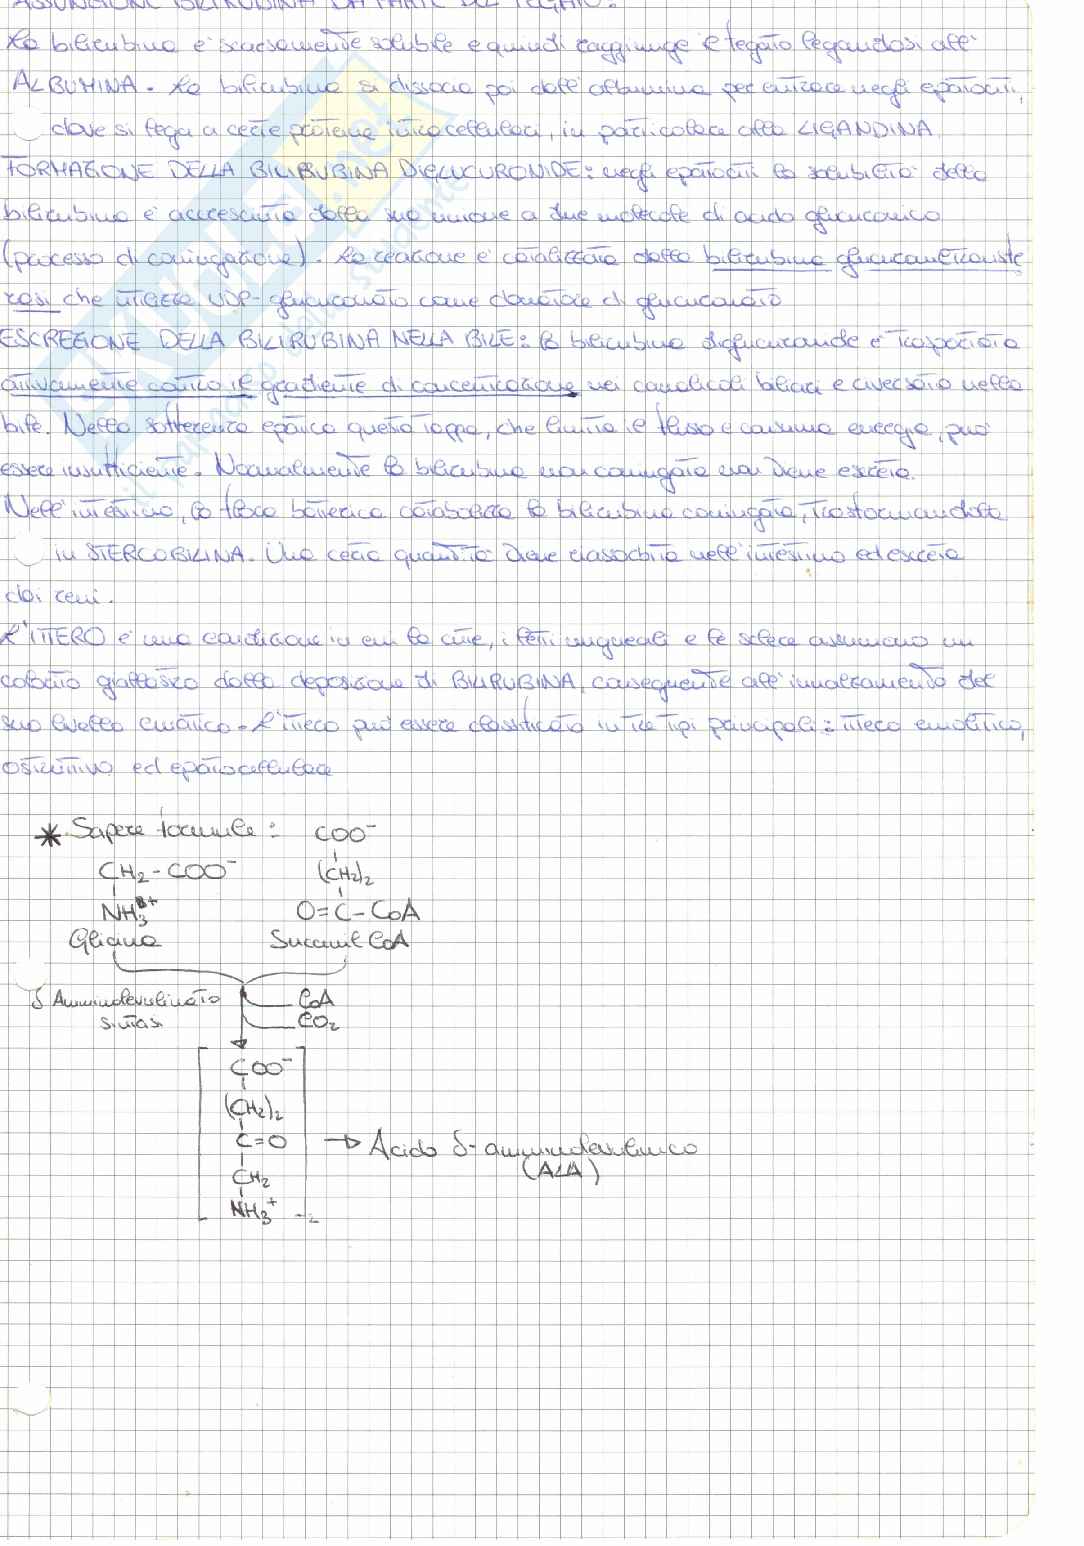 ASSUNZIONE BILIRUBINA DA PARTE DEL FEGATO:
La bilirubina è scarsamente solubile e quindi raggiunge il fegato legandosi all'
ALBUMINA. La bilirubina si dissocia poi dall'albumina per entrare negli epatociti,
dove si lega a certe proteine intracellulari, in particolare alla LIGANDINA.
FORMAZIONE DELLA BILIRUBINA DIGLUCURONIDE: negli epatociti la solubilità della
bilirubina è accresciuta dalla sua unione a due molecole di acido glucuronico
(processo di coniugazione). La reazione è catalizzata dalla bilirubina glucuroniltransfe
rasi che utilizza UDP-glucuronato come donatore di glucuronato
ESCREZIONE DELLA BILIRUBINA NELLA BILE: la bilirubina diglucuronide è trasportata
attivamente contro il gradiente di concentrazione nei canalicoli biliari e riversata nella
bile. Nella sofferenza epatica questa tappa, che limita il flusso e consuma energia, può
essere insufficiente. Normalmente la bilirubina non coniugata non viene escreta.
Nell'intestino, la flora batterica catabolizza la bilirubina coniugata, trasformandola
in STERCOBILINA. Una certa quantità viene riassorbita nell'intestino ed escreta
dai reni.
L'ITTERO è una condizione in cui la cute, i letti ungueali e le sclere assumono un
colorito giallastro dalla deposizione di BILIRUBINA, conseguente all'innalzamento del
suo livello ematico. L'ittero può essere classificato in tre tipi principali: ittero emolitico,
ostruttivo ed epatocellulare
* Sapere formule:
COO⁻
CH₂-COO⁻
(CH₂)₂
NH₃⁺
O=C-CoA
Glicina
Succinil CoA
δ Amminolevulinato
sintasi
CoA
CO₂
COO⁻
(CH₂)₂
C=O
→ Acido δ-amminolevulinico
(ALA)
CH₂
NH₃⁺